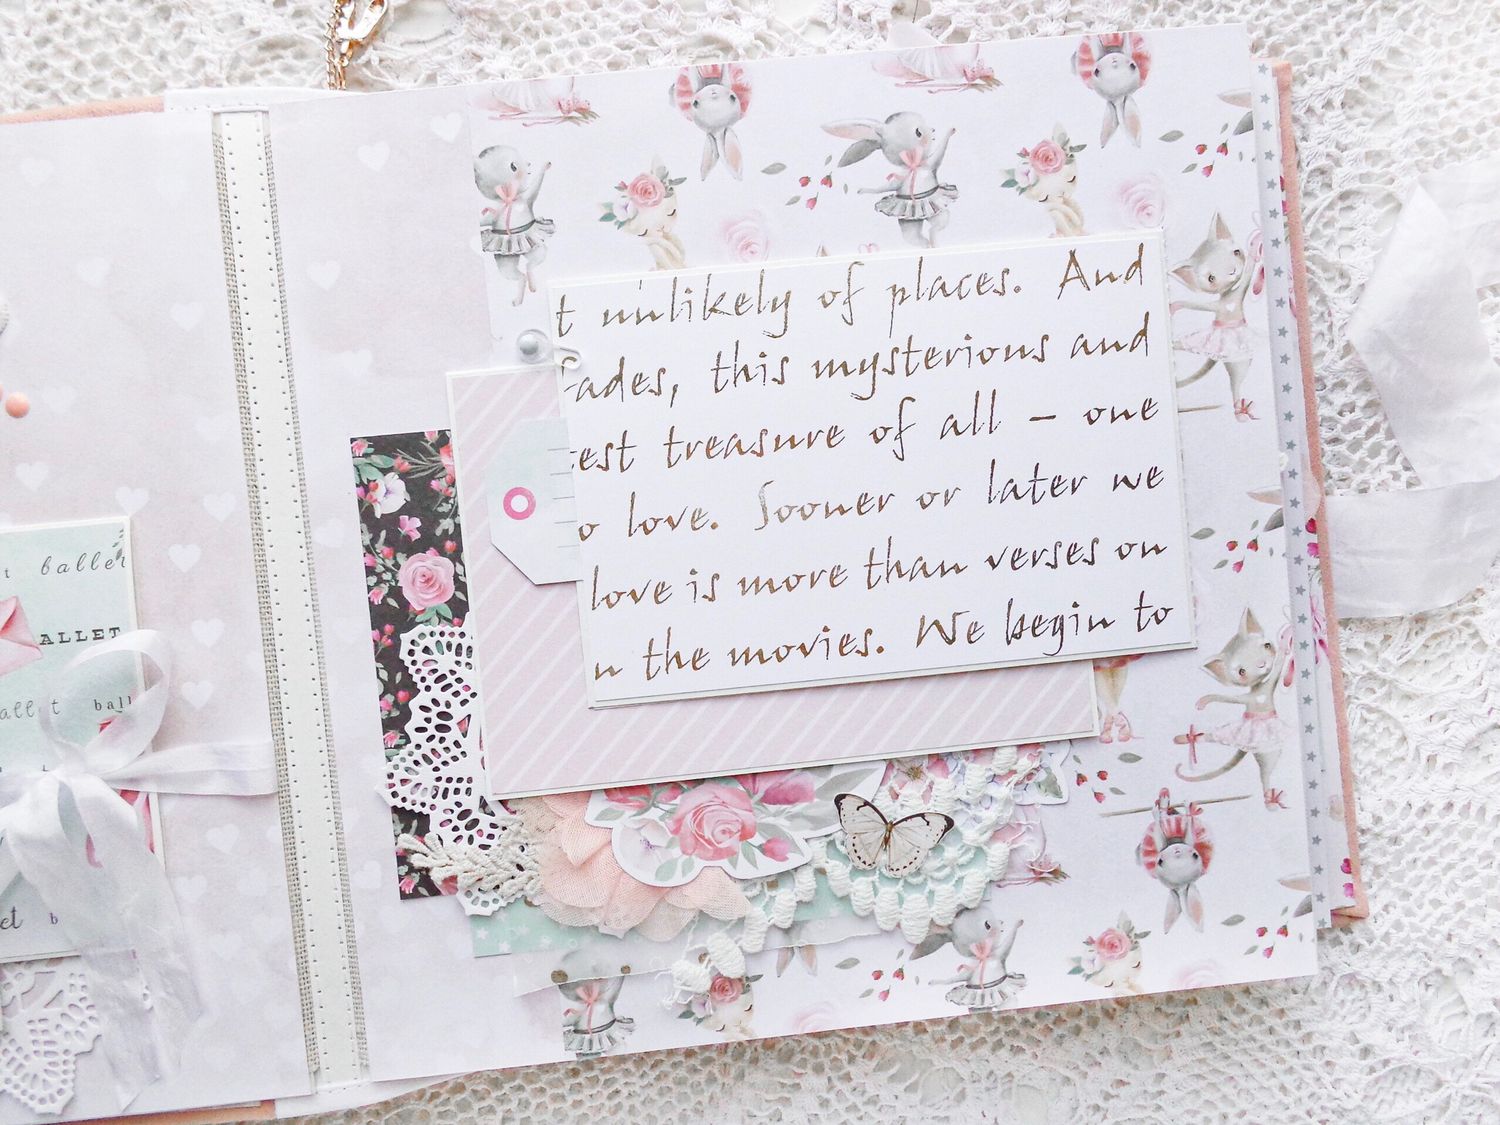 t unlikely of places. And
ades, this mysterious and
est treasure of all – one
o love. Sooner or later we
love is more than verses on
n the movies. We begin to
t ballet
ALLET
allet ball
et b